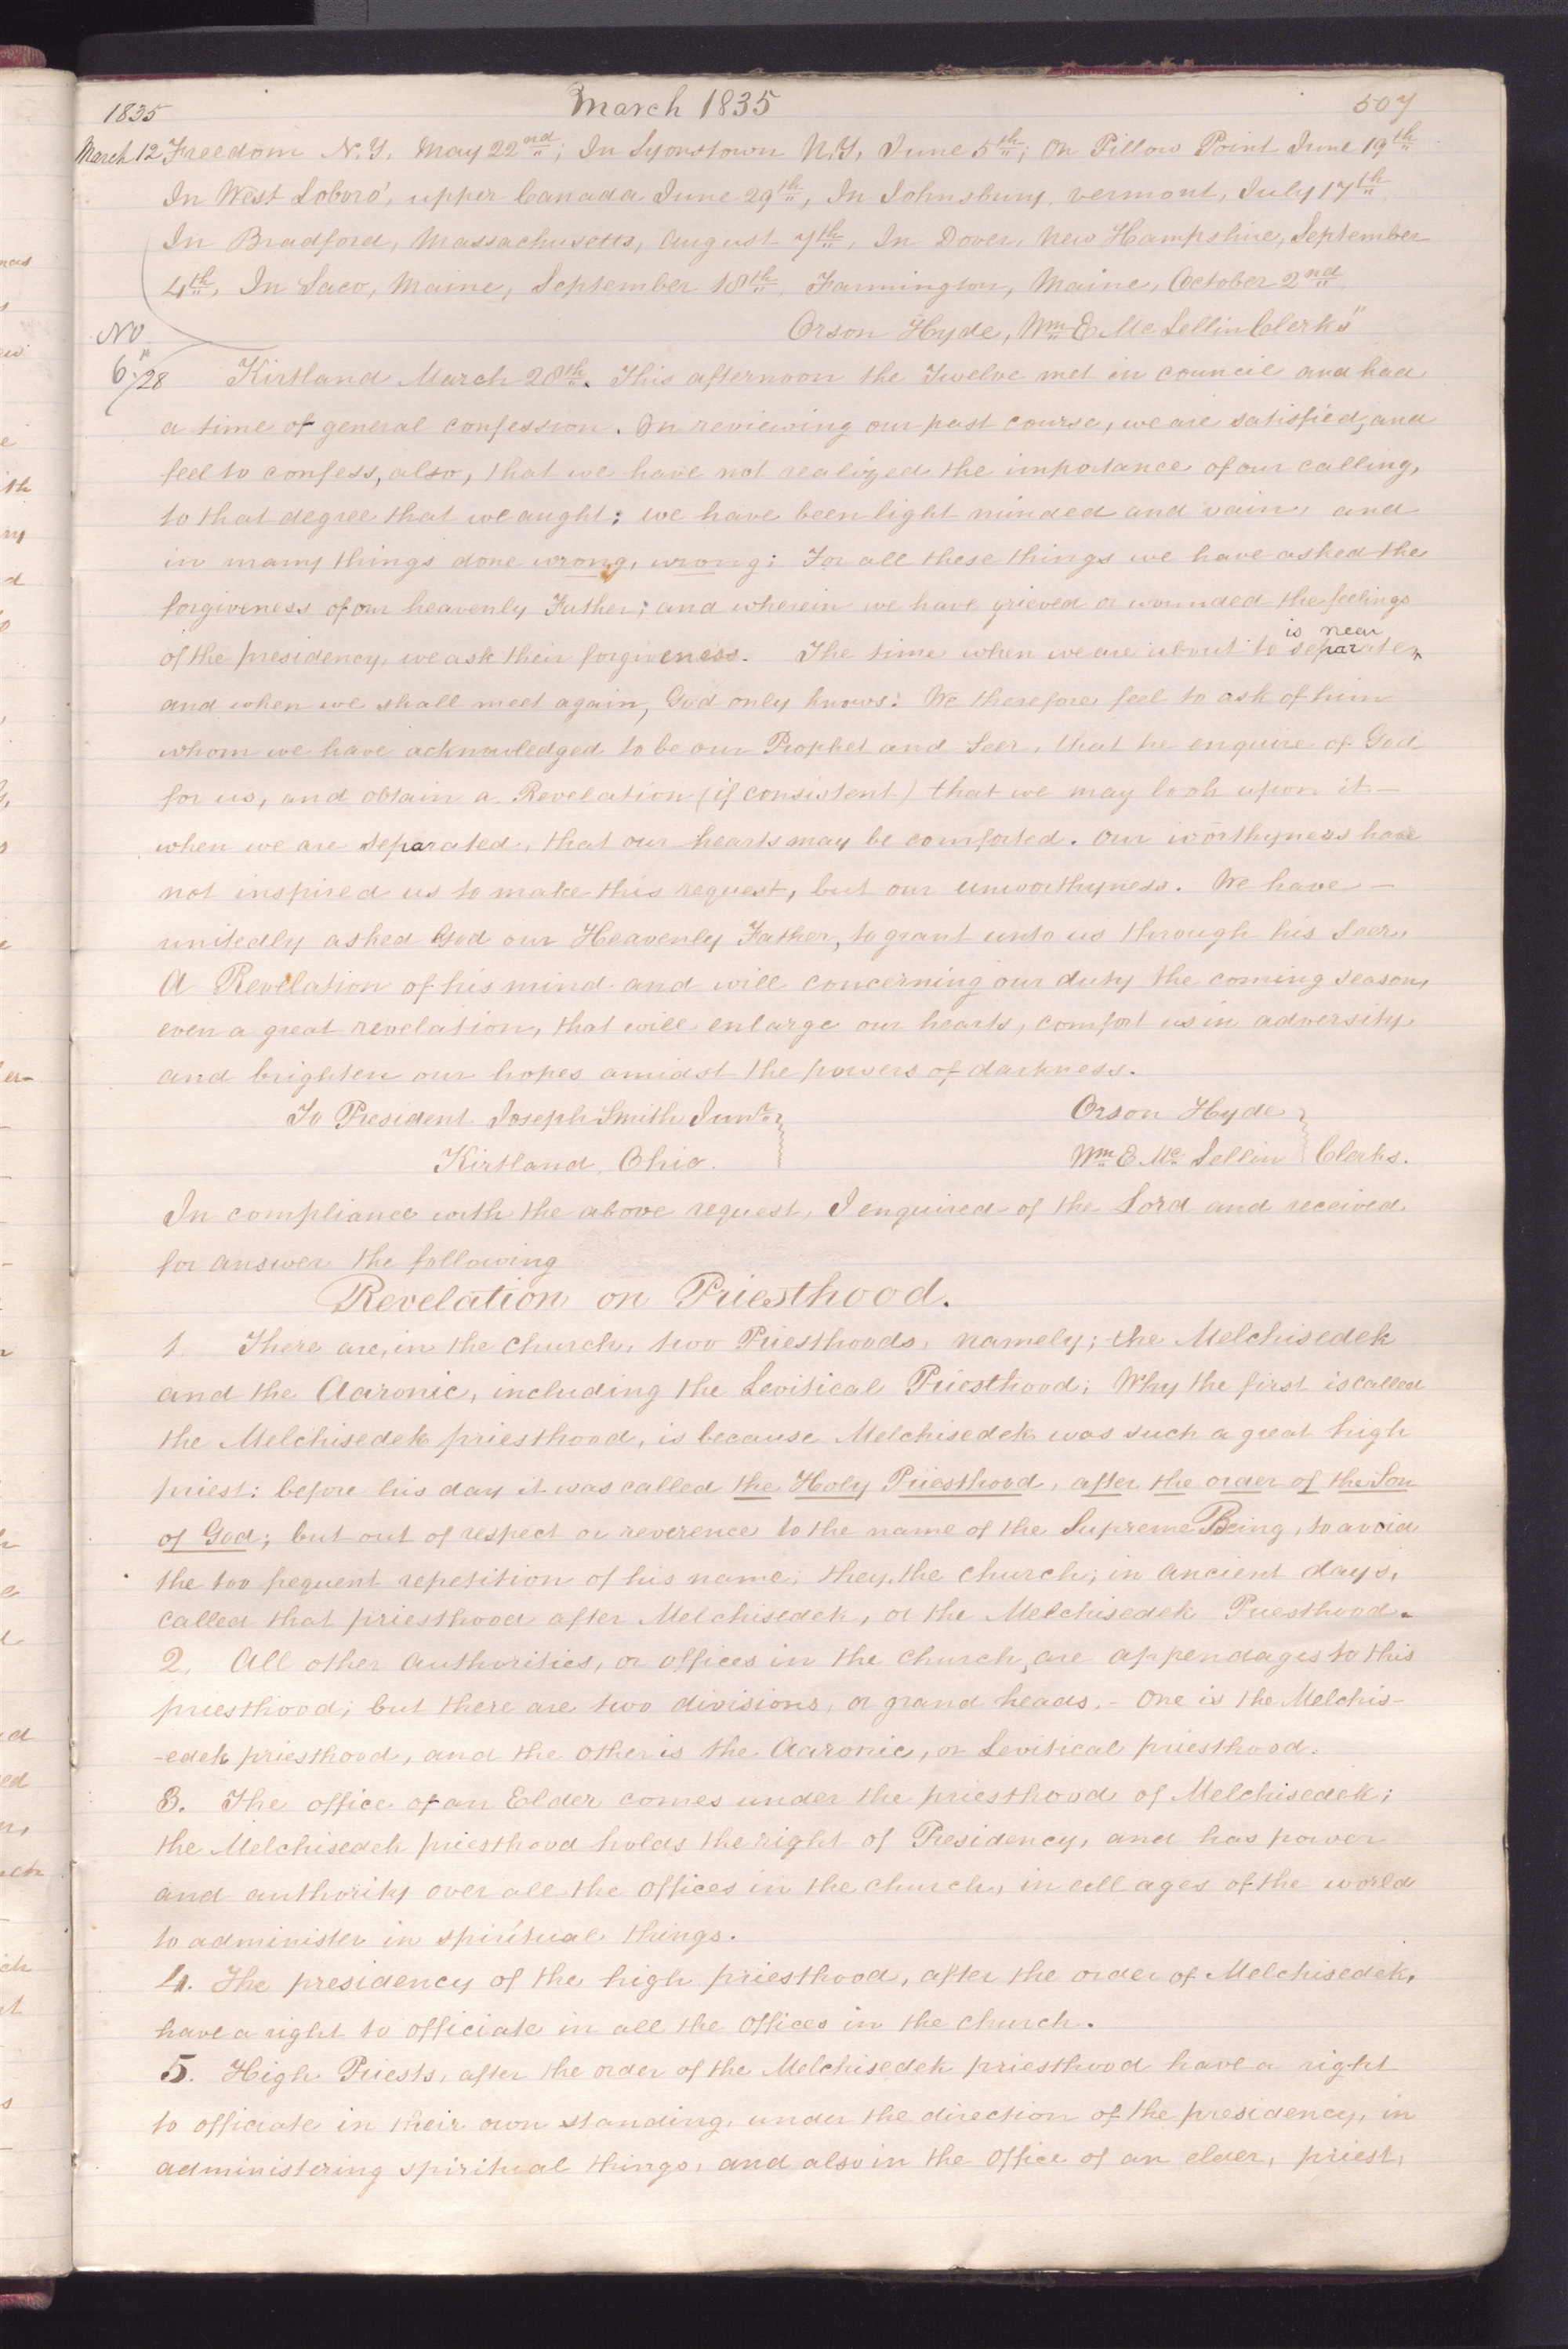 1835 March 1835 507
March 12 Freedom N.Y. May 22nd; In Lyonstown N.Y. June 5th; On Pillow Point June 19th
In West Loboro', upper Canada June 29th, In Johnsbury, vermont, July 17th
In Bradford, Massachusetts, august 7th, In Dover, New Hampshire, September
4th, In Saco, Maine, September 18th, Farmington, Maine, October 2nd
Orson Hyde, Wm E Mc Lellin Clerks"
No
6 /28 Kirtland March 28th. This afternoon the Twelve met in council and had
a time of general confession. On reviewing our past course, we are satisfied, and
feel to confess, also, that we have not realized the importance of our calling,
to that degree that we aught; we have been light minded and vain, and
in many things done wrong, wrong: For all these things we have asked the
forgiveness of our heavenly Father; and wherein we have grieved or wounded the feelings
is near
of the presidency, we ask their forgiveness. The time when we are about to separate,
and when we shall meet again, God only knows: We therefore feel to ask of him
whom we have acknowledged to be our Prophet and Seer, that he enquire of God
for us, and obtain a Revelation (if consistent) that we may look upon it—
when we are separated, that our hearts may be comforted. Our worthyness have
not inspired us to make this request, but our unworthyness. We have—
unitedly asked God our Heavenly Father, to grant unto us through his Seer,
A Revelation of his mind and will concerning our duty the coming season,
even a great revelation, that will enlarge our hearts, comfort us in adversity,
and brighten our hopes amidst the powers of darkness.
To President Joseph Smith Junr. Orson Hyde
Kirtland, Ohio. Wm E Mc Lellin Clerks.
In compliance with the above request, I enquired of the Lord and received
for answer the following
Revelation on Priesthood.
1. There are, in the church, two Priesthoods, namely; the Melchisedek
and the Aaronic, including the Levitical Priesthood; Why the first is called
the Melchisedek priesthood, is because Melchisedek was such a great high
priest: before his day it was called the Holy Priesthood, after the order of the Son
of God; but out of respect or reverence to the name of the Supreme Being, to avoid
the too frequent repetition of his name; they, the church; in ancient days,
called that priesthood after Melchisedek, or the Melchisedek Priesthood.
2. All other authorities, or offices in the church, are appendages to this
priesthood; but there are two divisions, or grand heads.— One is the Melchis-
-edek priesthood, and the other is the Aaronic, or Levitical priesthood.
3. The office of an Elder comes under the priesthood of Melchisedek;
the Melchisedek priesthood holds the right of Presidency, and has power
and authority over all the offices in the church, in all ages of the world
to administer in spiritual things.
4. The presidency of the high priesthood, after the order of Melchisedek,
have a right to officiate in all the offices in the church.
5. High Priests, after the order of the Melchisedek priesthood have a right
to officiate in their own standing, under the direction of the presidency, in
administering spiritual things, and also in the office of an elder, priest,